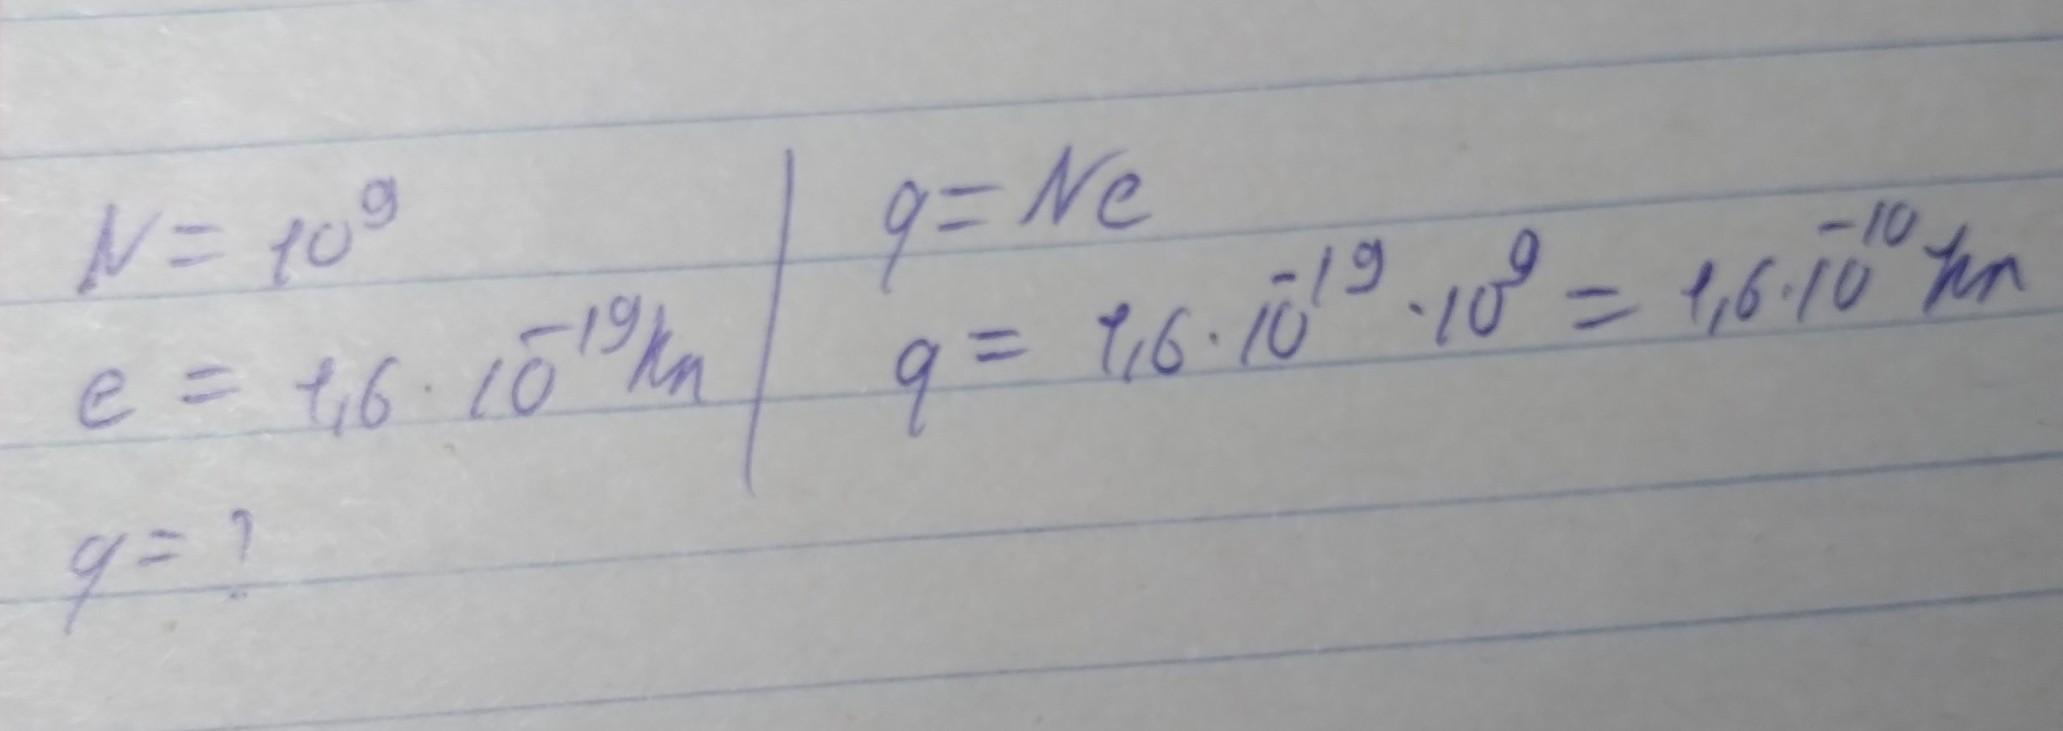 N = 10⁹
e = 1,6 · 10⁻¹⁹ Кл
q = ?
q = Ne
q = 1,6 · 10⁻¹⁹ · 10⁹ = 1,6 · 10⁻¹⁰ Кл